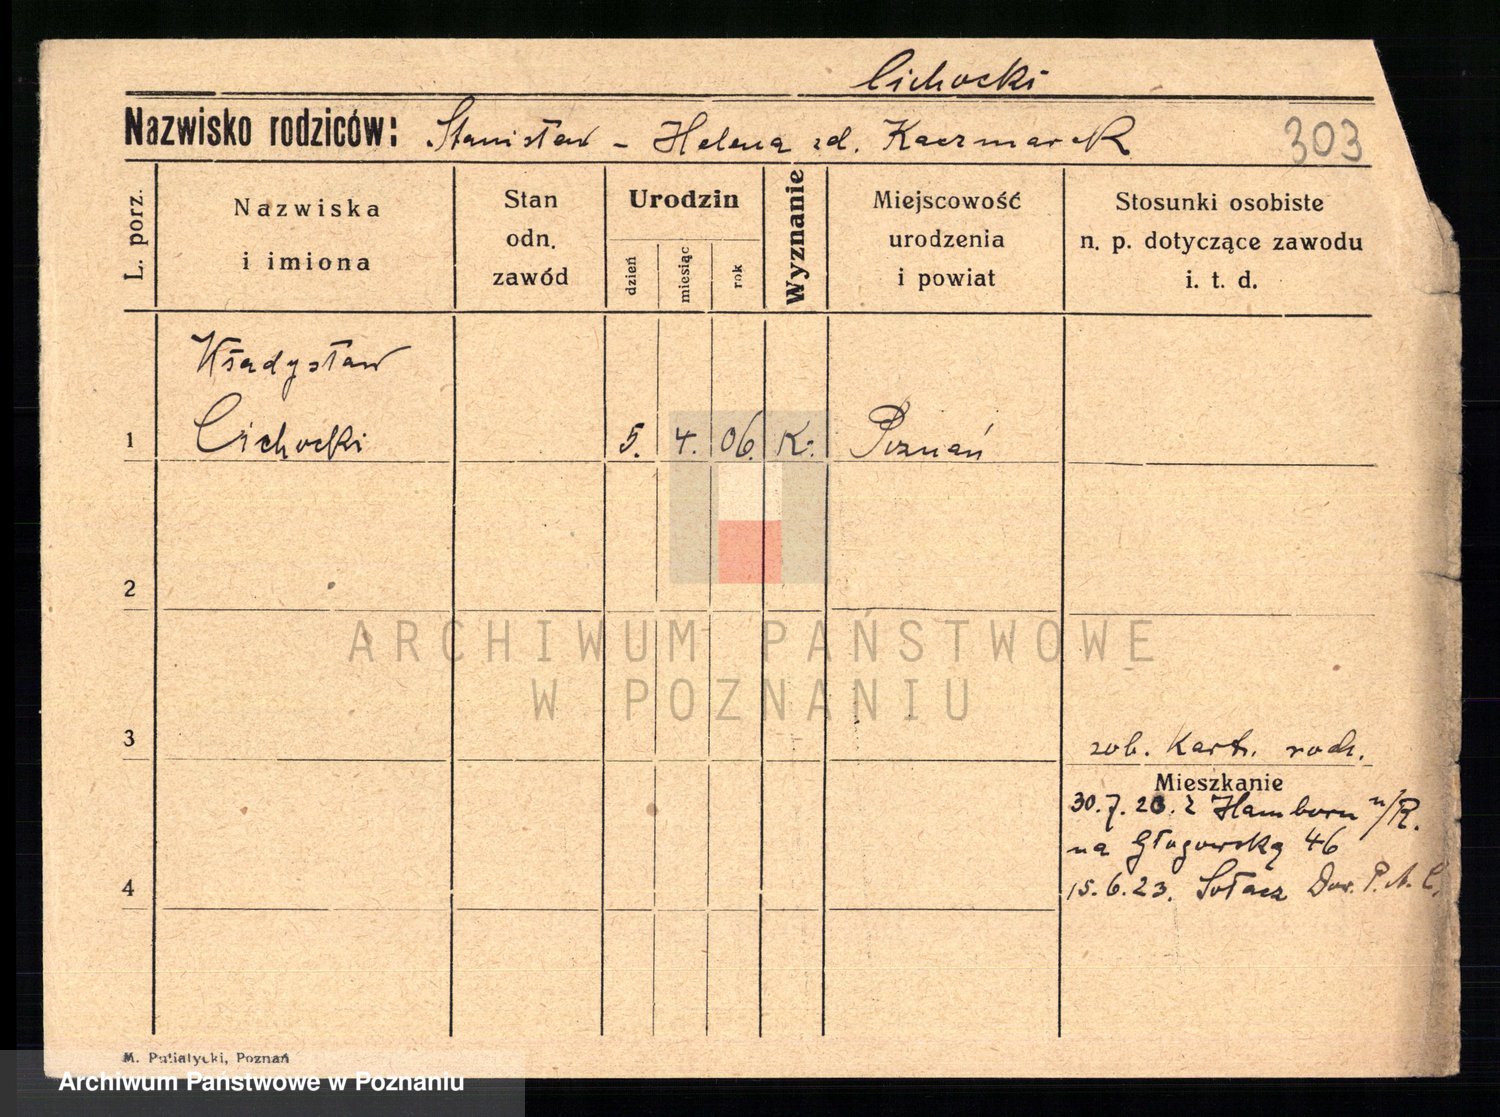 Cichocki
Nazwisko rodziców: Stanisław – Helena zd. Kaczmarek
303
L. porz.
Nazwiska
i imiona
Stan
odn.
zawód
Urodzin
dzień
miesiąc
rok
Wyznanie
Miejscowość
urodzenia
i powiat
Stosunki osobiste
n. p. dotyczące zawodu
i. t. d.
Władysław
1 Cichocki 5. 4. 06. K. Poznań
2
ARCHIWUM PAŃSTWOWE
W POZNANIU
3
zob. Kart. rodz.
Mieszkanie
30.7.20. z Hamborn n/R.
na Głogowską 46
4
15.6.23. Sołacz
M. Putiatycki, Poznań
Archiwum Państwowe w Poznaniu